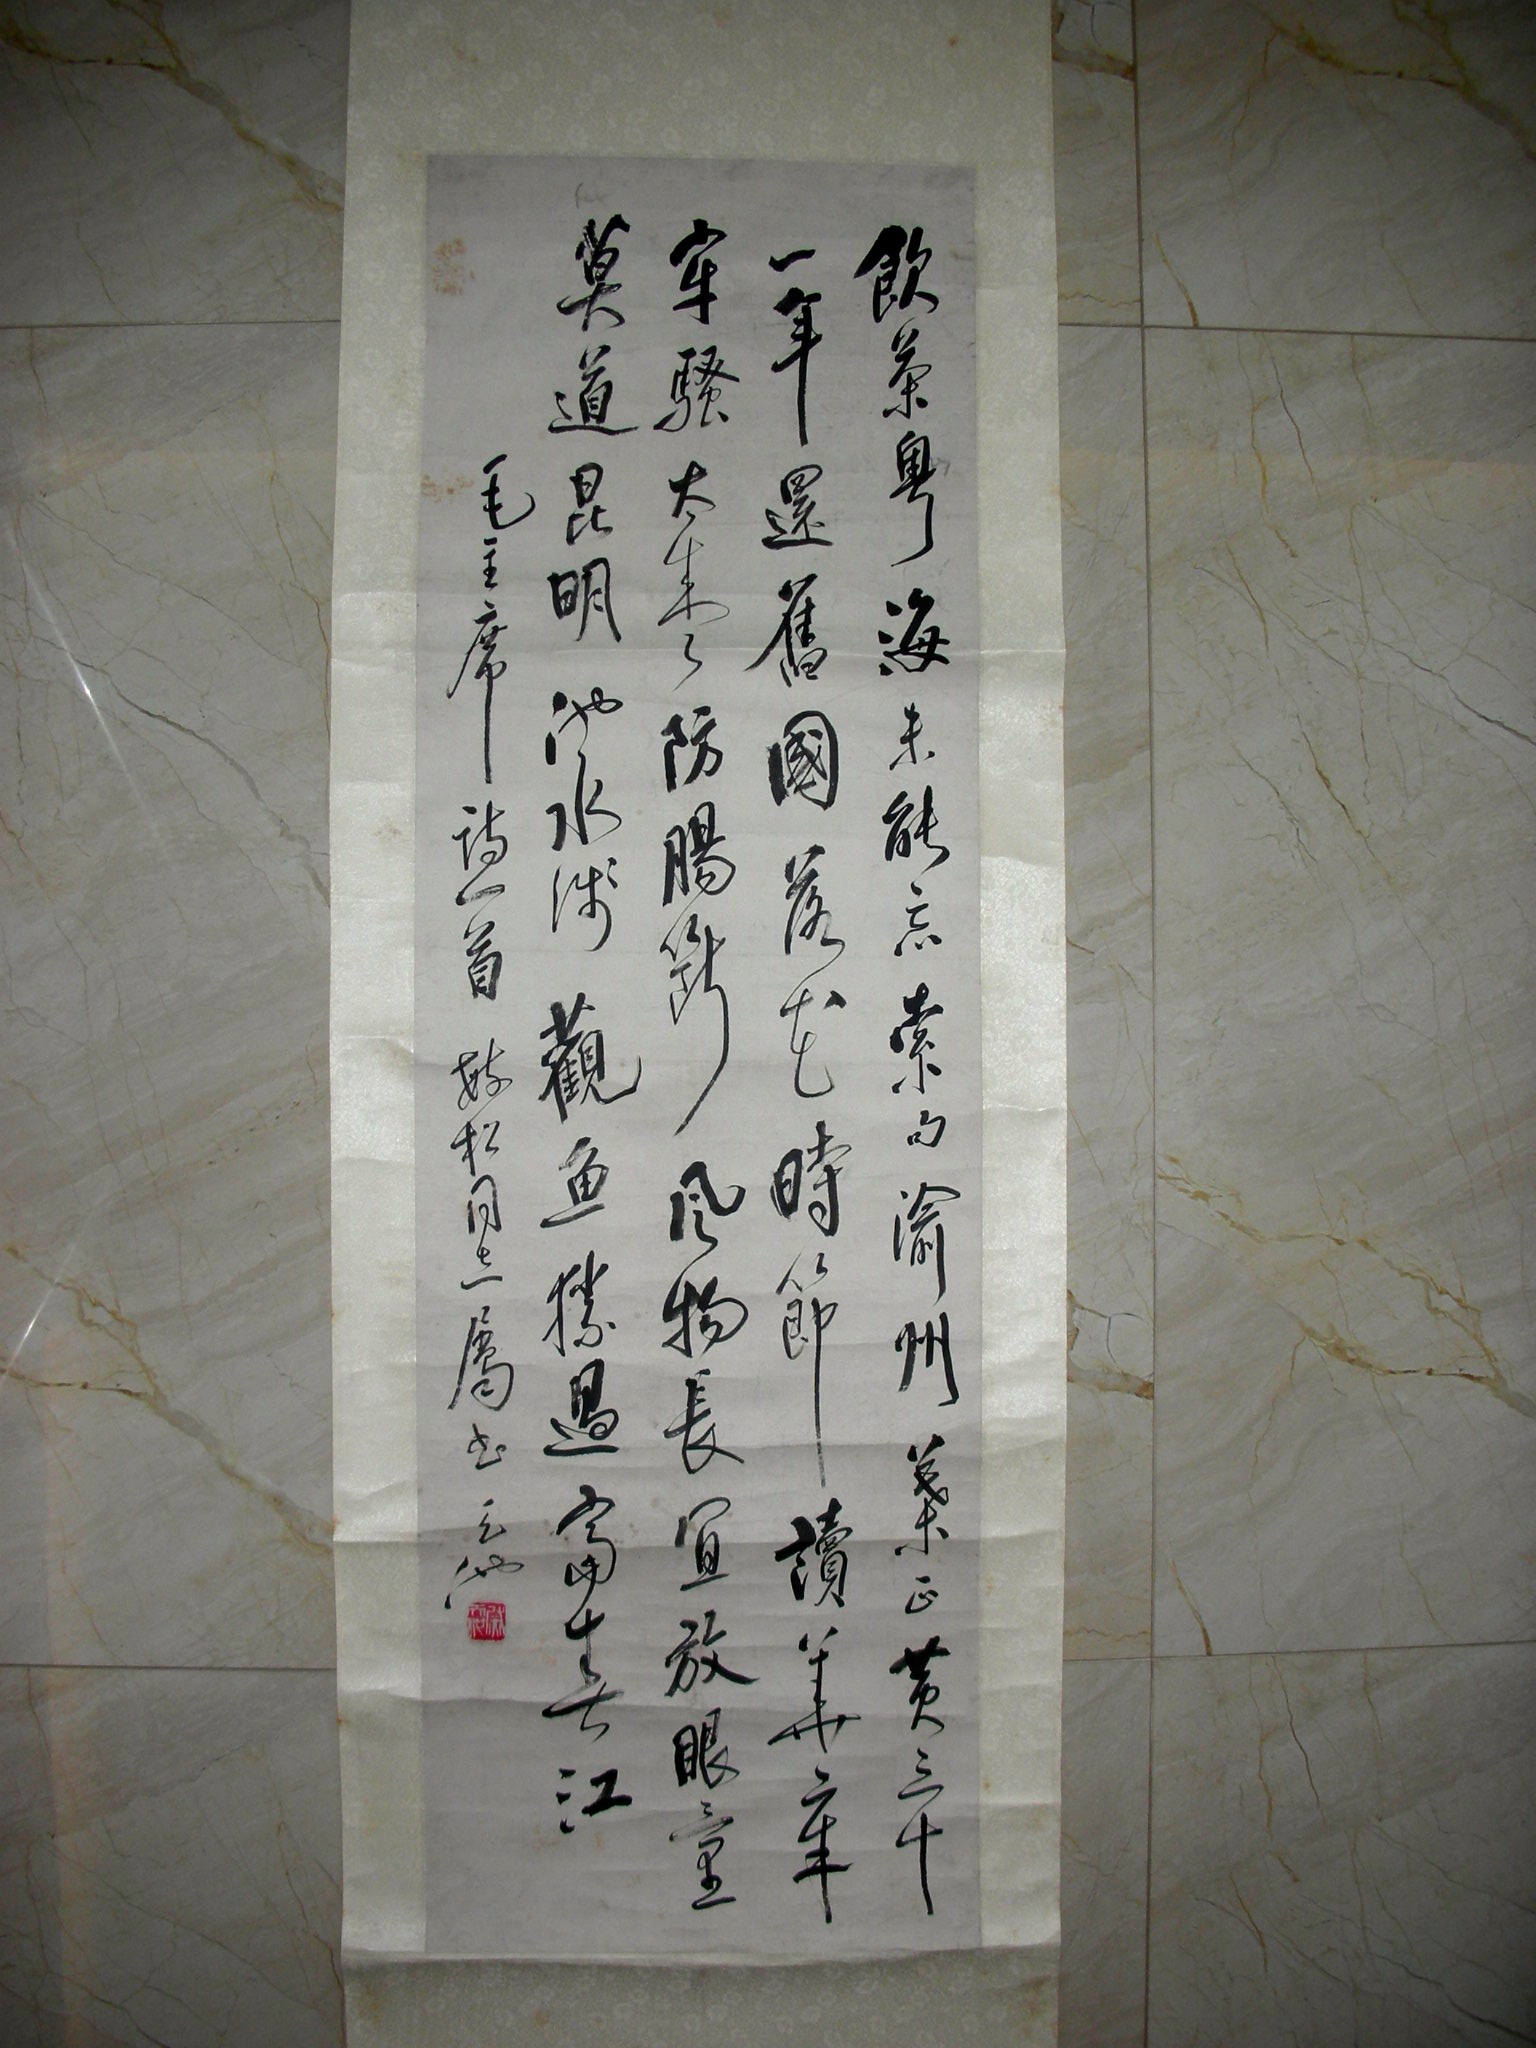 飲茶粤海未能忘索句渝州葉正黄三十
一年還舊國落花時節讀華章
牢騷太盛防腸斷风物長宜放眼量
莫道昆明池水浅觀鱼勝過富春江
毛主席诗一首 敏松同志屬书